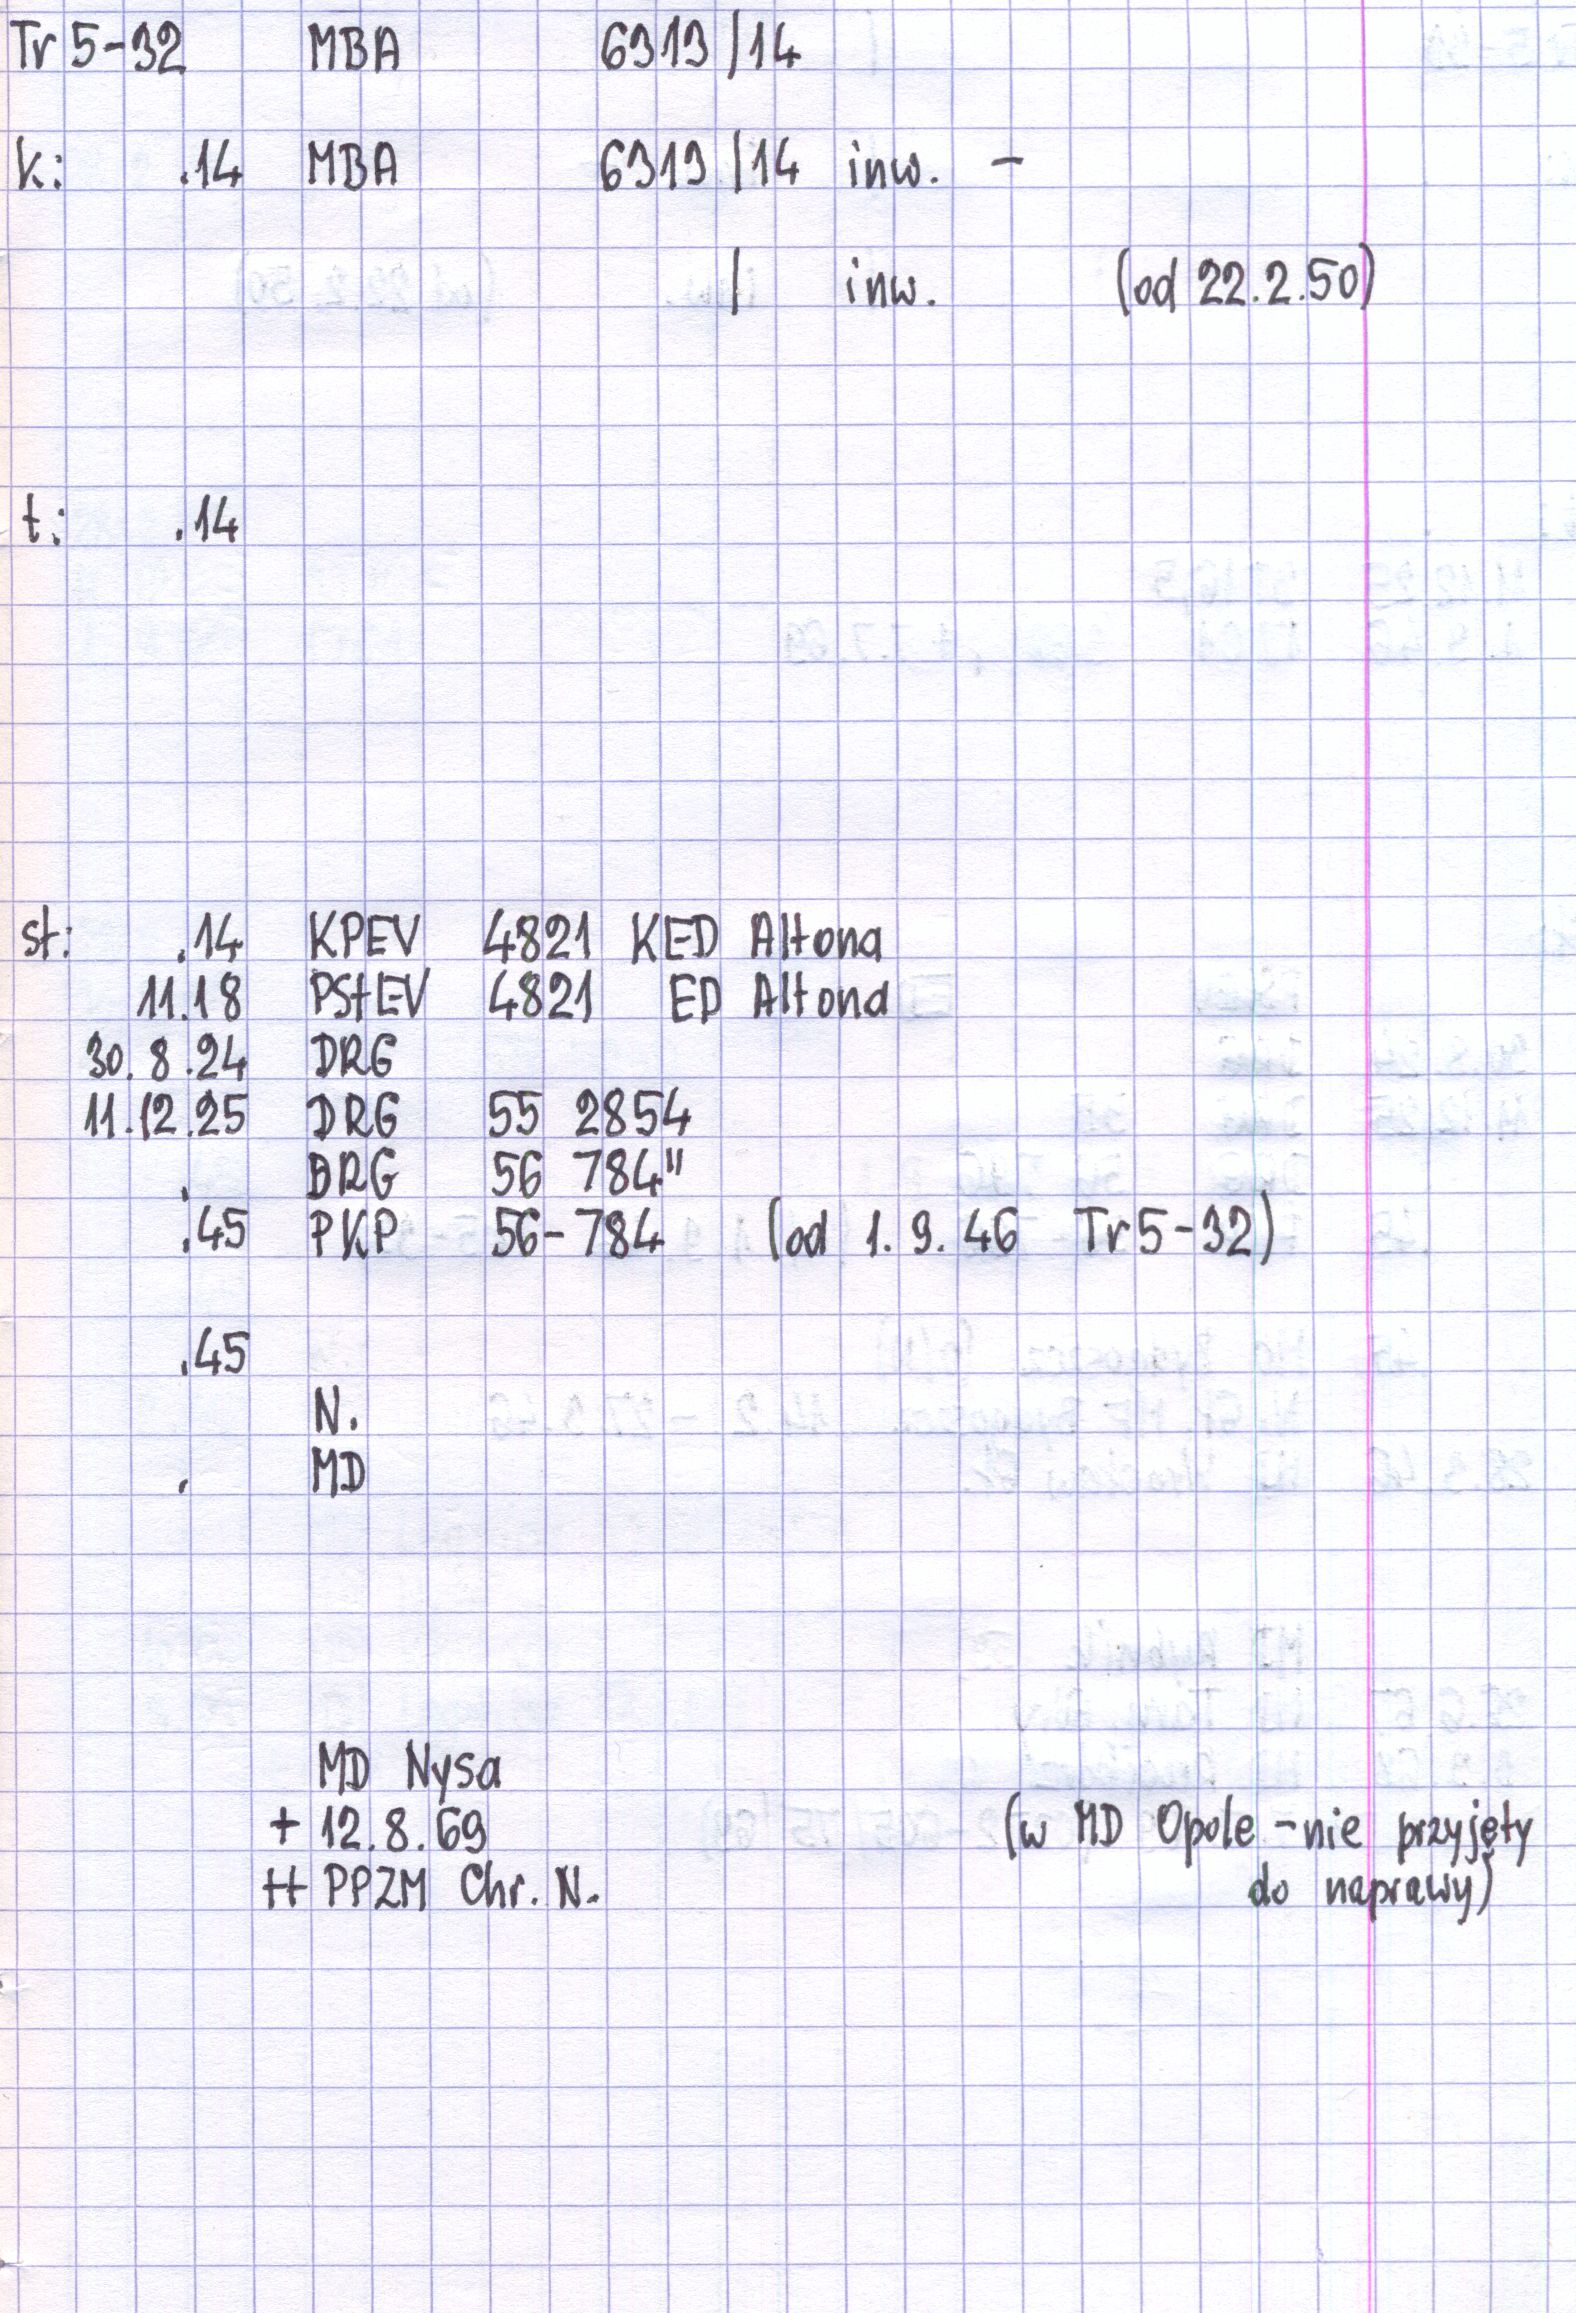 Tr 5-32 MBA 6313/14
k: .14 MBA 6313/14 inw. -
/ inw. (od 22.2.50)
t: .14
st: .14 KPEV 4821 KED Altona
11.18 PStEV 4821 ED Altona
30.8.24 DRG
11.12.25 DRG 55 2854
. DRG 56 784"
.45 PKP 56-784 (od 1.9.46 Tr5-32)
.45
N.
. MD
MD Nysa
+ 12.8.69 (w MD Opole - nie przyjęty
++ PPZM Chr. N. do naprawy)